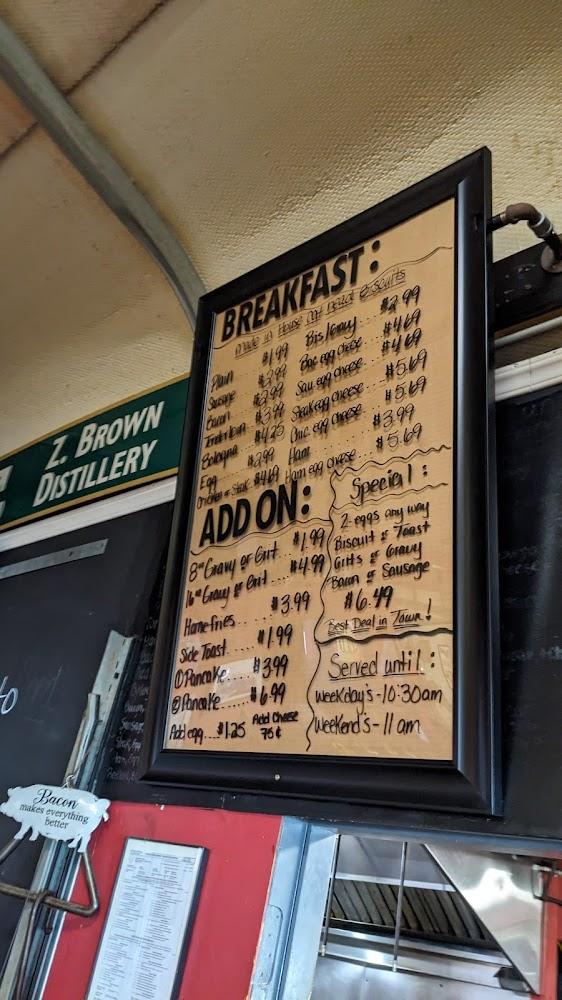 BREAKFAST:
made in House Cat Head Biscuits
Plain $1.99
Sausage $2.99
Bacon $2.99
Tenderloin $3.99
Bologna $4.25
Egg $2.99
Chicken or Steak $4.69
Bis/Gravy... $2.99
Bac egg cheese... $4.69
Sau egg cheese... $4.69
Steak egg cheese... $5.69
Chic egg cheese... $5.69
Ham... $3.99
Ham egg cheese... $5.69
ADD ON:
8oz Gravy or Grit.... $1.99
16oz Gravy or Grit.... $4.99
Homefries..... $3.99
Side Toast.... $1.99
① Pancake.... $3.99
② Pancake.... $6.99
Add egg.... $1.25
Add Cheese
75¢
Special:
2-eggs any way
Biscuit or Toast
Grits or Gravy
Bacon or Sausage
$6.49
Best Deal in Town!
Served until:
Weekday's-10:30am
Weekend's-11am
Z. BROWN
DISTILLERY
to
Bacon
makes everything
better